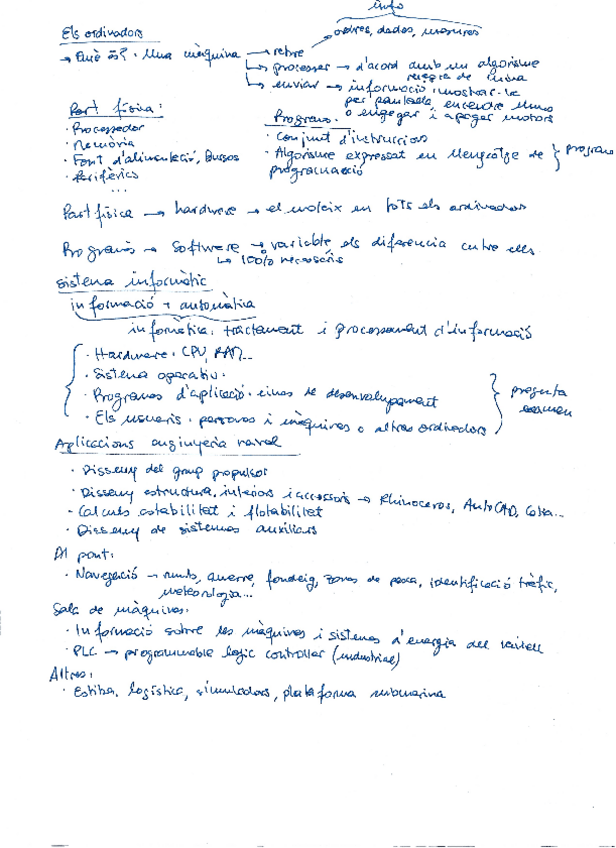 info
Els ordinadors
ordres, dades, mesures
→ Què és? · Una màquina → rebre
↳ processar → d'acord amb un algorisme
↳ enviar → informació i mostrar-la
per pantalla, encendre llums
o engegar i apagar motors
Part física:
· Processador
· Memòria
· Font d'alimentació, Busos
· Perifèrics
...
Programa.
· Conjunt d'instruccions
· Algorisme expressat en llenguatge de programació } programa
Part física → hardware → el mateix en tots els ordinadors
Programes → Software → variable els diferencia entre ells
↳ 100% necessaris
Sistema informàtic
informació + automàtica
informàtica: tractament i processament d'informació
· Hardware. CPU, RAM...
· Sistema operatiu.
· Programes d'aplicació. eines de desenvolupament
· Els usuaris. persones i màquines o altres ordinadors
} pregunta examen
Aplicacions enginyeria naval
· Disseny del grup propulsor
· Disseny estructura, interiors i accessoris → Rhinoceros, AutoCAD, ...
· Calculs estabilitat i flotabilitat
· Disseny de sistemes auxiliars
Al pont:
· Navegació → rumb, guerra, fondeig, zones de pesca, identificació tràfic,
meteorologia...
Sala de màquines:
· Informació sobre les màquines i sistemes d'energia del vaixell
· PLC → programmable logic controller (industrial)
Altres:
· Estiba, logística, simuladors, plataforma submarina